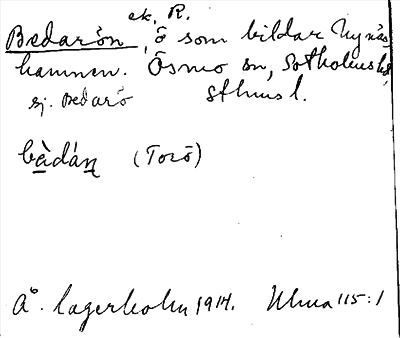 ek. R.
Bedarön, ö som bildar Nynäs
hamnen. Ösmo sn, Sotholms hd,
sj. Bedarö Sthms l.
bàdán (Torö)
Å. Lagerholm 1914. Ulma 115:1